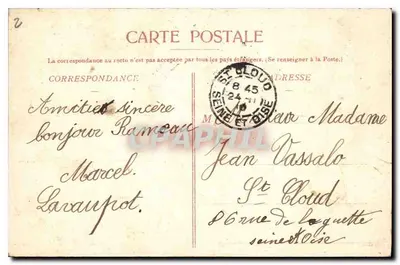 2
CARTE POSTALE
La correspondance au recto n'est pas acceptée par tous les pays étrangers. (Se renseigner à la Poste.)
CORRESPONDANCE
ADRESSE
ST CLOUD
8 45
24
SEINE-ET-OISE
Amitié sincère
bonjour Rameau
Marcel
Lavaupot.
M Madame
Jean Vassalo
St Cloud
86 rue de la guette
seine et Oise
CPARAMA